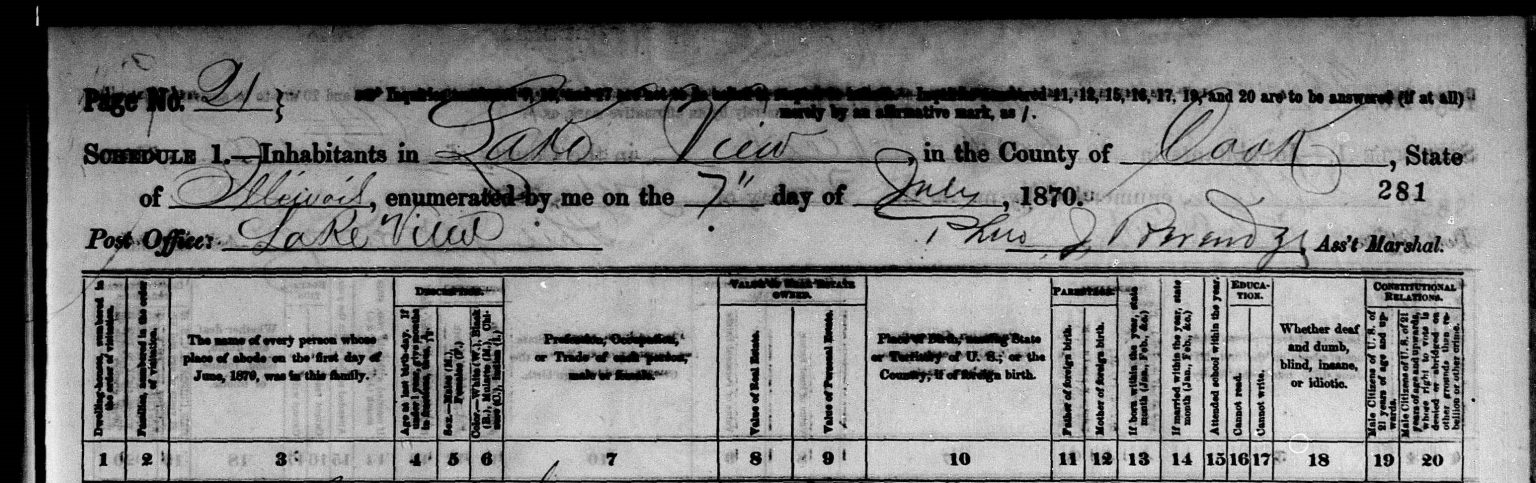 Page No. 21 } ☞ Inquiries numbered 7, 16, and 17 are not to be asked in respect to infants. Inquiries numbered 11, 12, 15, 16, 17, 19, and 20 are to be answered (if at all)
merely by an affirmative mark, as /.
SCHEDULE 1.—Inhabitants in Lake View, in the County of Cook, State
of Illinois, enumerated by me on the 7" day of July, 1870. 281
Post Office: Lake View Ass't Marshal.
DESCRIPTION. VALUE OF REAL ESTATE OWNED. PARENTAGE. EDUCATION. CONSTITUTIONAL RELATIONS.
Dwelling-houses, numbered in the order of visitation.
Families, numbered in the order of visitation.
The name of every person whose place of abode on the first day of June, 1870, was in this family.
Age at last birth-day. If under 1 year, give months in fractions, thus, 3/12
Sex.—Males (M.), Females (F.)
Color.—White (W.), Black (B.), Mulatto (M.), Chinese (C.), Indian (I.)
Profession, Occupation, or Trade of each person, male or female.
Value of Real Estate.
Value of Personal Estate.
Place of Birth, naming State or Territory of U. S.; or the Country, if of foreign birth.
Father of foreign birth.
Mother of foreign birth.
If born within the year, state month (Jan., Feb., &c.)
If married within the year, state month (Jan., Feb., &c.)
Attended school within the year.
Cannot read.
Cannot write.
Whether deaf and dumb, blind, insane, or idiotic.
Male Citizens of U. S. of 21 years of age and upwards.
Male Citizens of U. S. of 21 years of age and upwards, whose right to vote is denied or abridged on other grounds than rebellion or other crime.
1 2 3 4 5 6 7 8 9 10 11 12 13 14 15 16 17 18 19 20